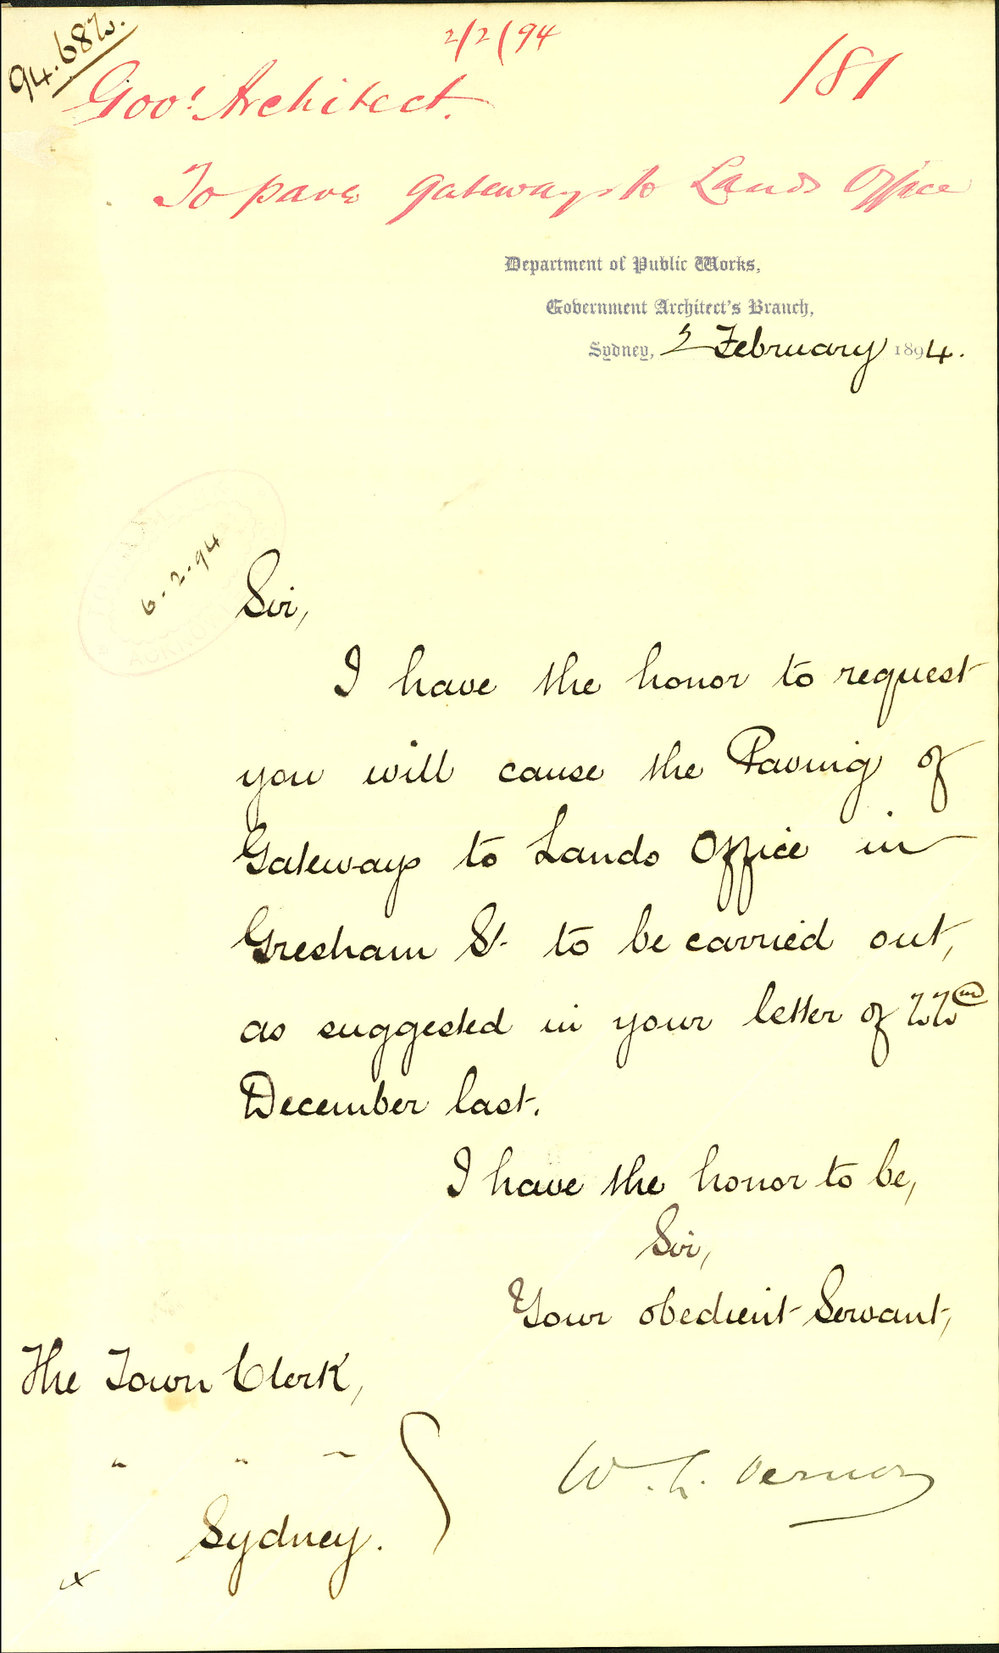 94.682.
2/2/94
181
Govt Architect.
To pave gateways to Lands Office
Department of Public Works,
Government Architect's Branch,
Sydney, 2 February 1894.
6.2.94
Sir,
I have the honor to request
you will cause the Paving of
Gateways to Lands Office in
Gresham St. to be carried out,
as suggested in your letter of 22nd
December last.
I have the honor to be,
Sir,
Your obedient Servant,
The Town Clerk,
" " "
Sydney.
W. L. Vernon